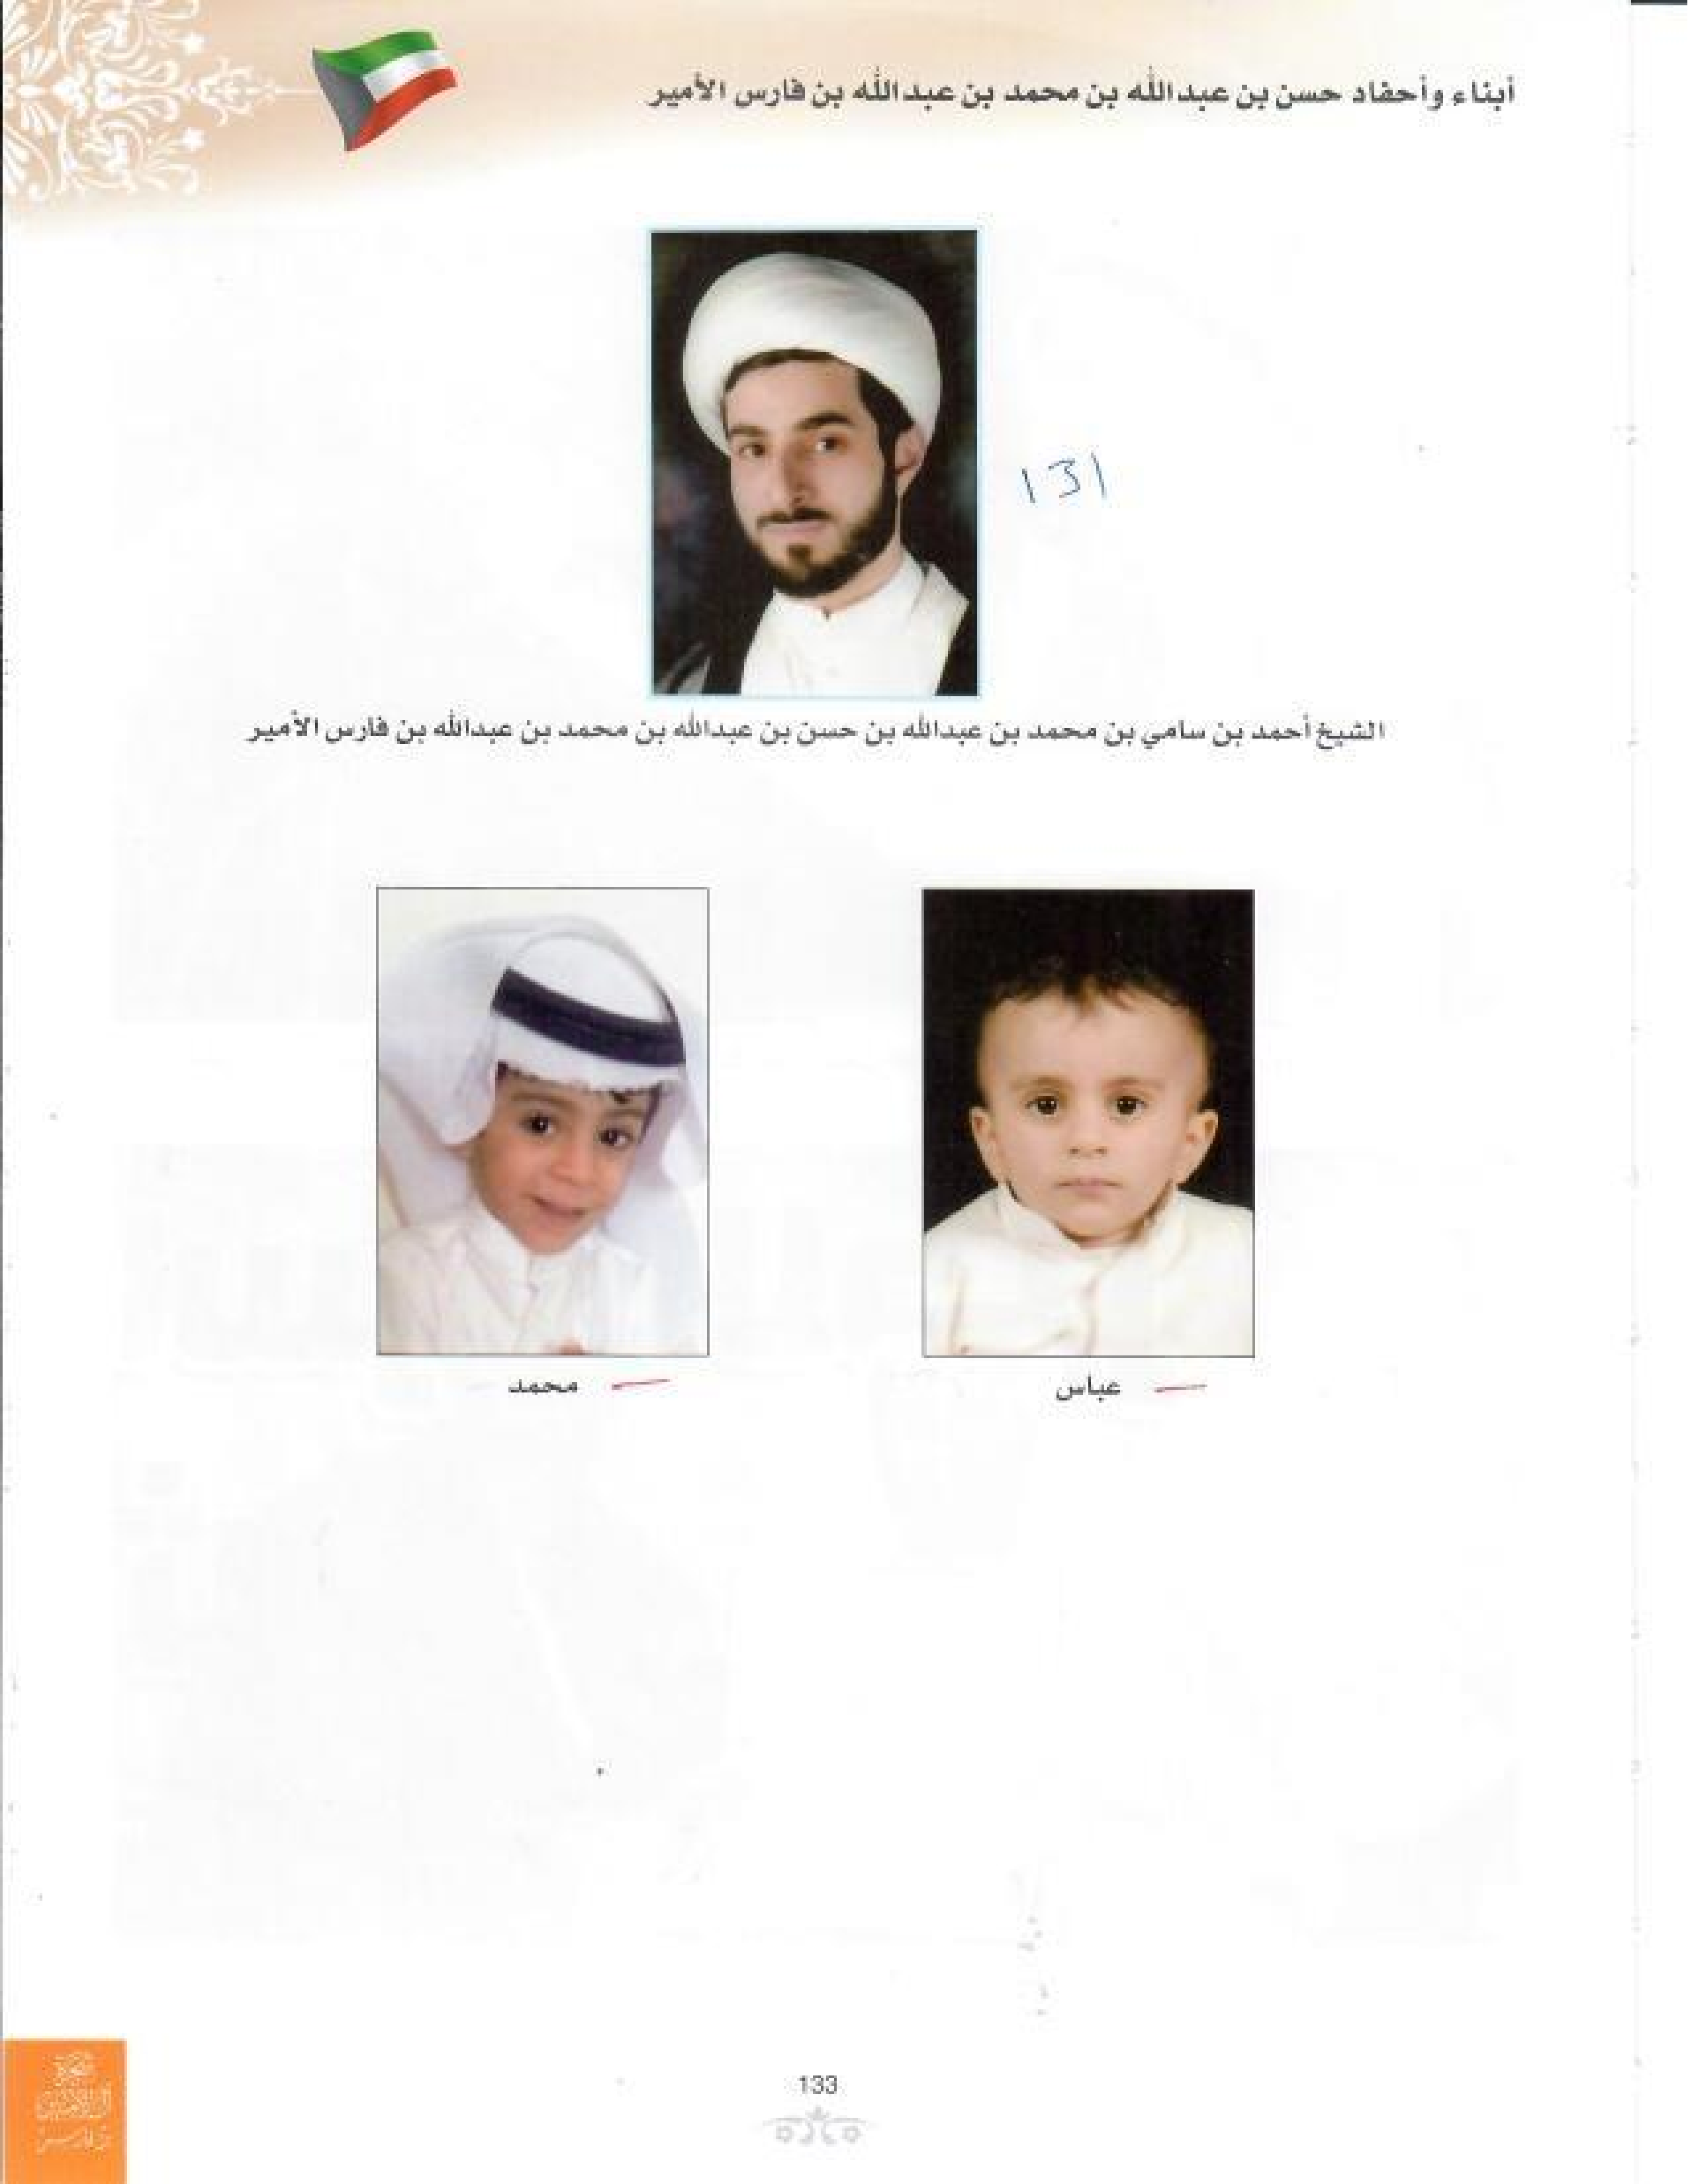 أبناء وأحفاد حسن بن عبدالله بن محمد بن عبدالله بن فارس الأمير
131
الشيخ أحمد بن سامي بن محمد بن عبدالله بن حسن بن عبدالله بن محمد بن عبدالله بن فارس الأمير
عباس
محمد
133